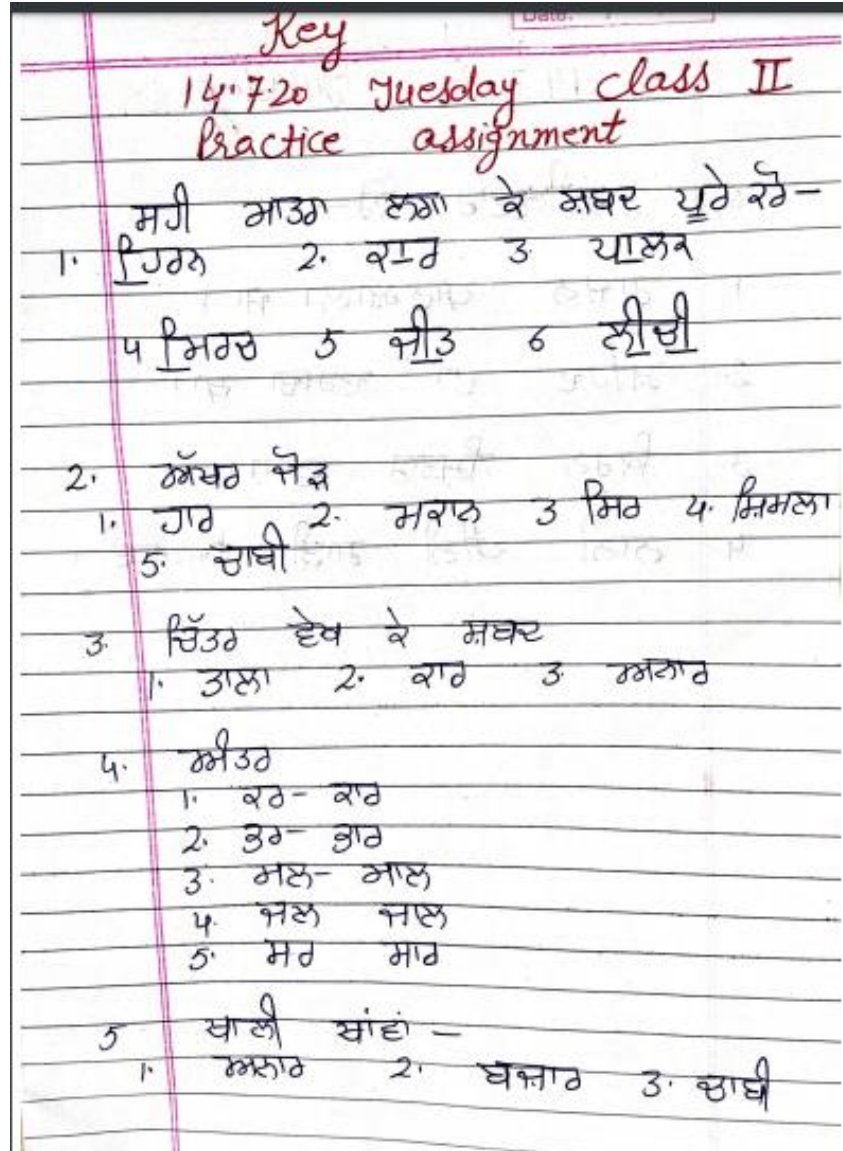 Date:
Key
14.7.20 Tuesday Class II
Practice assignment
ਸਹੀ ਮਾਤਰਾ ਲਗਾ ਕੇ ਸ਼ਬਦ ਪੂਰੇ ਕਰੋ-
1. ਹਿਰਨ 2. ਕਾਰ 3. ਪਾਲਕ
4 ਮਿਰਚ 5 ਜੀਤ 6 ਲੀਚੀ
2. ਅੱਖਰ ਜੋੜ
1. ਹਾਰ 2. ਮਕਾਨ 3 ਸਿਰ 4. ਸ਼ਿਮਲਾ
5. ਚਾਬੀ
3. ਚਿੱਤਰ ਵੇਖ ਕੇ ਸ਼ਬਦ
1. ਤਾਲਾ 2. ਕਾਰ 3. ਅਨਾਰ
4. ਅੰਤਰ
1. ਕਰ- ਕਾਰ
2. ਭਰ- ਭਾਰ
3. ਮਲ- ਮਾਲ
4. ਜਲ ਜਾਲ
5. ਮਰ ਮਾਰ
5 ਖਾਲੀ ਥਾਂਵਾਂ -
1. ਅਨਾਰ 2. ਬਜ਼ਾਰ 3. ਚਾਬੀ